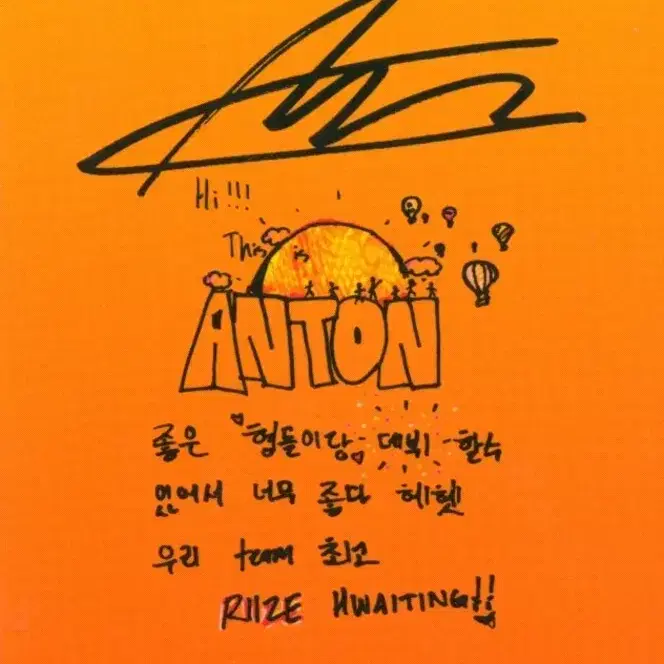 Hi!!!
This is
ANTON
좋은 형들이랑 데뷔 할수
있어서 너무 좋다 헤헷
우리 team 최고
RIIZE HWAITING!!